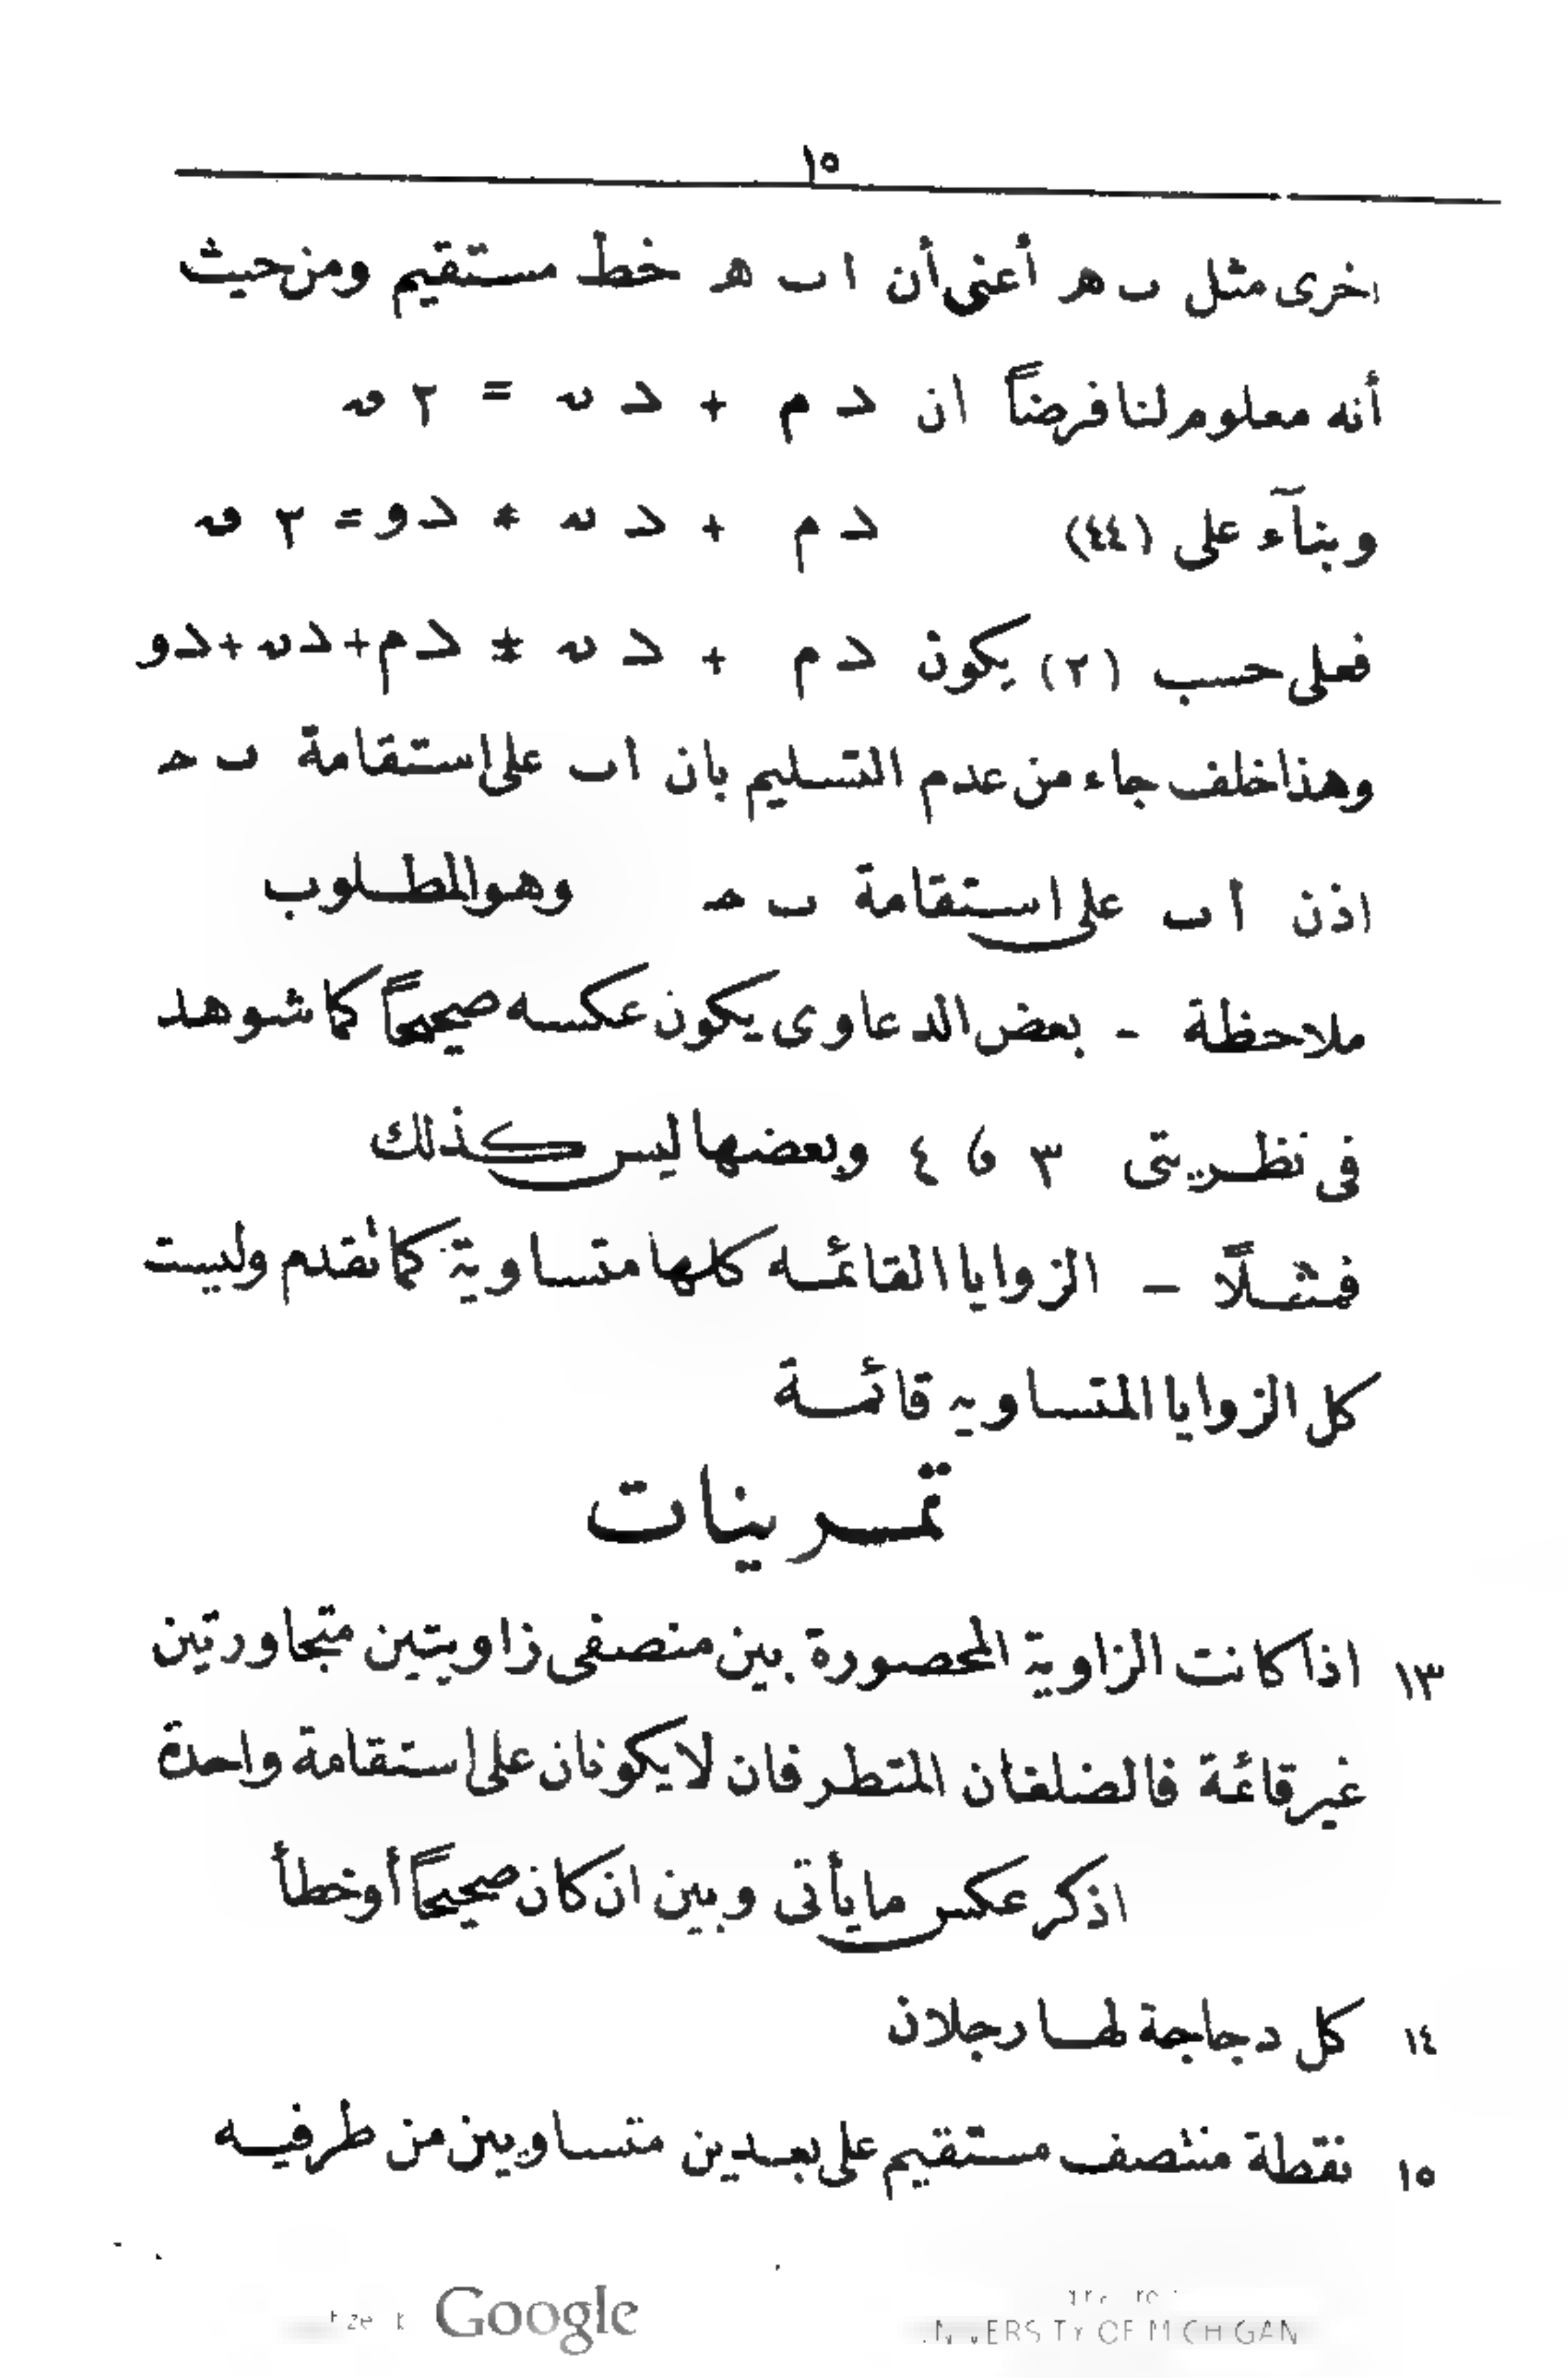 ١٥
اخرى مثل ٮ ه أعنى أن ا ٮ ه خط مستقيم ومن حيث
أنه معلوم لنا فرضاً ان د م + د ں = ٢ ق
وبنآء على (٤٤) د م + د ں + د و = ٢ ق
فعلى حسب (٢) يكون د م + د ں = د م + د ں + د و
وهذا خلف جاء من عدم التسليم بان ا ٮ على استقامة ٮ ح
اذن أ ٮ على استقامة ٮ ح وهو المطلوب
ملاحظة - بعض الدعاوى يكون عكسه صحيحاً كما شوهد
فى نظريتى ٣ ، ٤ وبعضها ليس كذلك
فمثلاً - الزوايا القائمه كلها متساوية كما تقدم وليست
كل الزوايا المتساويه قائمة
تمرينات
١٣ اذا كانت الزاوية المحصورة بين منصفى زاويتين متجاورتين
غير قائمة فالضلعان المتطرفان لا يكونان على استقامة واحدة
اذكر عكس ما يأتى وبين ان كان صحيحاً أو خطأ
١٤ كل دجاجة لها رجلان
١٥ نقطة منتصف مستقيم على بعدين متساويين من طرفيه
Google
UNIVERSITY OF MICHIGAN